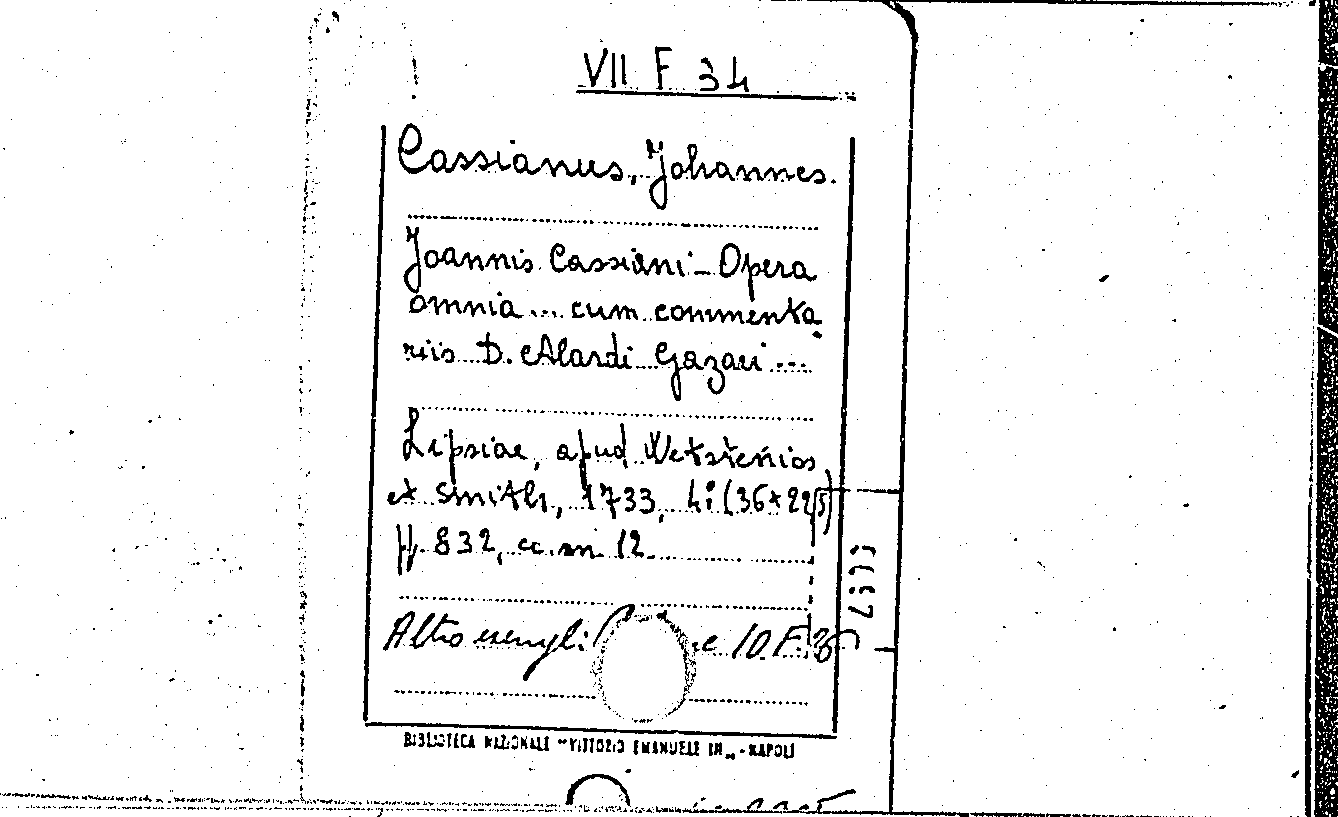 VII F 34
Cassianus, Johannes.
Joannis Cassiani - Opera
omnia ... cum commenta
riis D. Alardi Gazaei ...
Lipsiae, apud Wetstenios
et Smith, 1733, 4: (36x22,5)
pp. 832, cc. m. 12.
Altro 10. F. 35
BIBLIOTECA NAZIONALE "VITTORIO EMANUELE III„ - NAPOLI